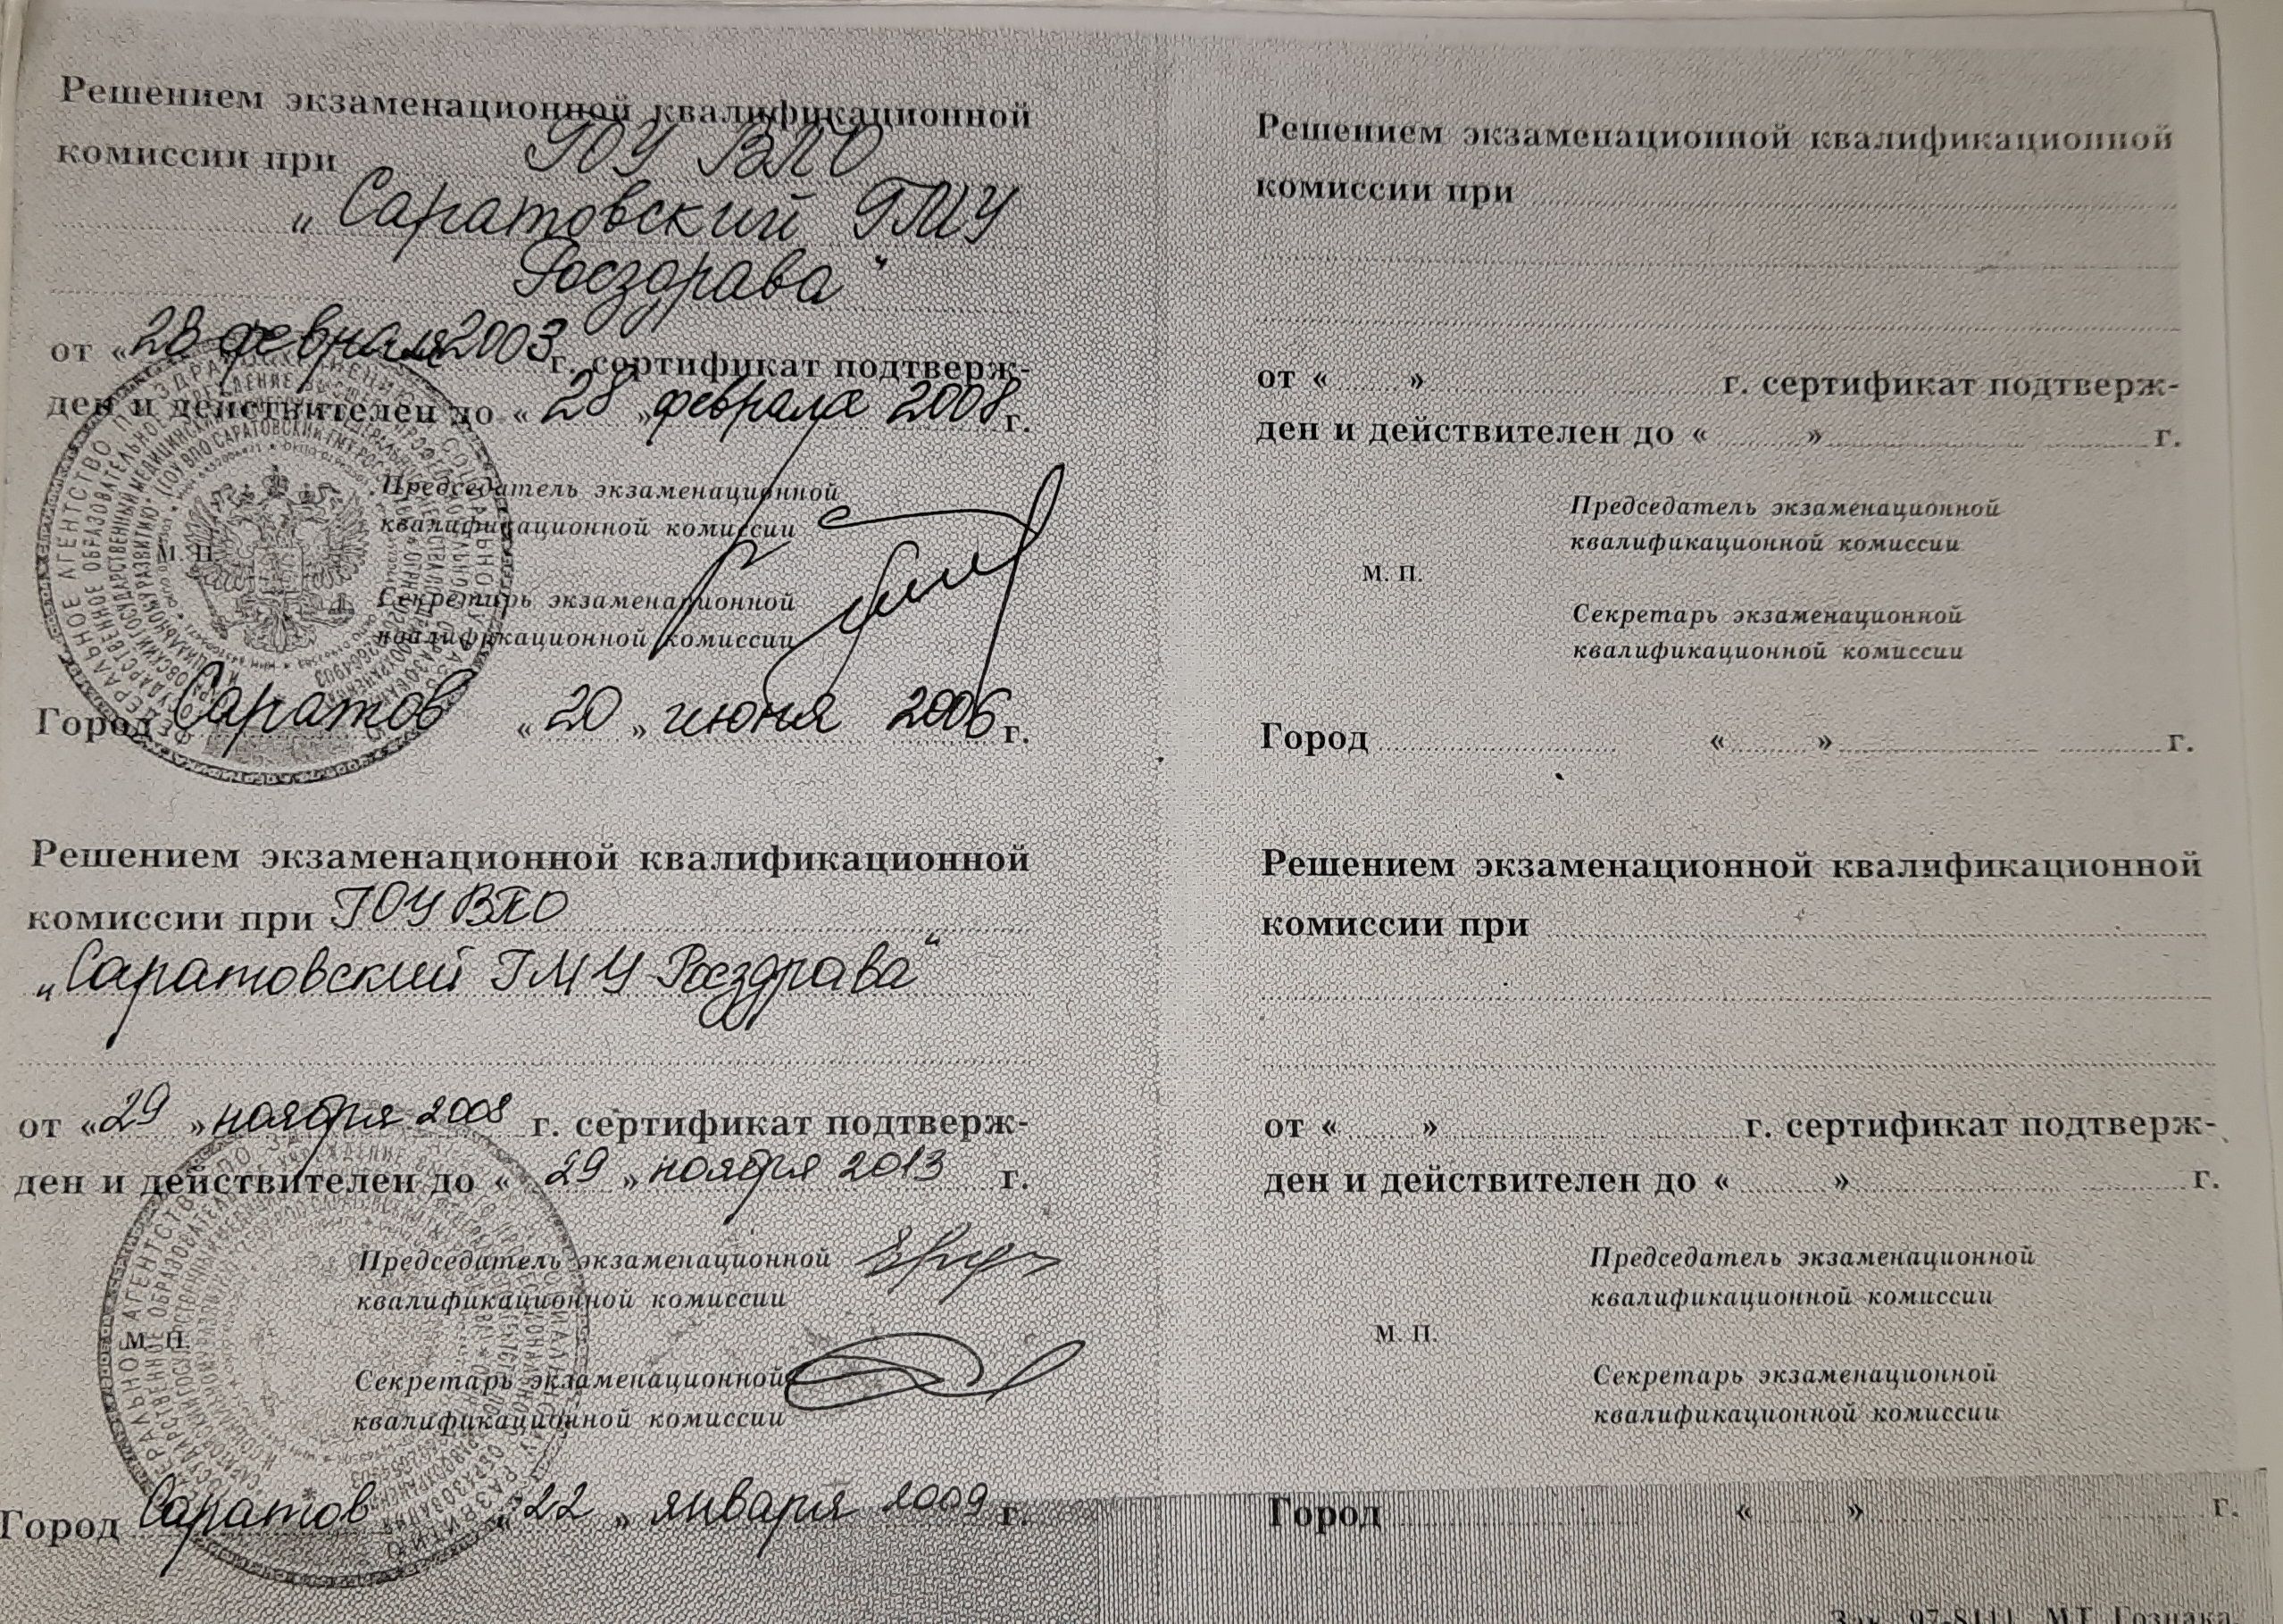 Решением экзаменационной квалификационной
комиссии при ГОУ ВПО
„Саратовский ГМУ
Росздрава“
от «28 февраля 2003 г. сертификат подтверж-
ден и действителен до «28» февраля 2008 г.
Председатель экзаменационной
квалификационной комиссии
М. П.
Секретарь экзаменационной
квалификационной комиссии
Город Саратов «20» июня 2006 г.
Решением экзаменационной квалификационной
комиссии при ГОУ ВПО
„Саратовский ГМУ Росздрава“
от «29» ноября 2008 г. сертификат подтверж-
ден и действителен до «29» ноября 2013 г.
Председатель экзаменационной
квалификационной комиссии
М. П.
Секретарь экзаменационной
квалификационной комиссии
Город Саратов «22» января 2009 г.
Решением экзаменационной квалификационной
комиссии при
от « » г. сертификат подтверж-
ден и действителен до « » г.
Председатель экзаменационной
квалификационной комиссии
М. П.
Секретарь экзаменационной
квалификационной комиссии
Город « » г.
Решением экзаменационной квалификационной
комиссии при
от « » г. сертификат подтверж-
ден и действителен до « » г.
Председатель экзаменационной
квалификационной комиссии
М. П.
Секретарь экзаменационной
квалификационной комиссии
Город « » г.
Зак. 97-8111. МТ Гознака.